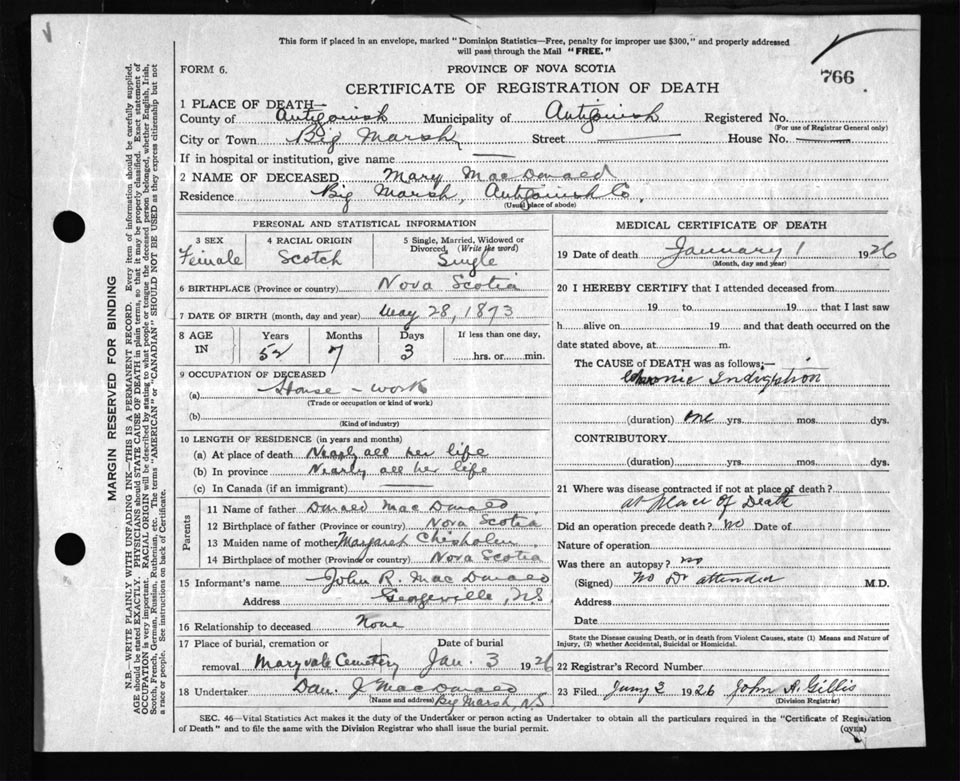 This form if placed in an envelope, marked "Dominion Statistics—Free, penalty for improper use $300," and properly addressed
will pass through the Mail "FREE."
FORM 6.
PROVINCE OF NOVA SCOTIA
766
CERTIFICATE OF REGISTRATION OF DEATH
1 PLACE OF DEATH—
County of Antigonish Municipality of Antigonish Registered No.
(For use of Registrar General only)
City or Town Big Marsh Street — House No. —
If in hospital or institution, give name —
2 NAME OF DECEASED Mary MacDonald
Residence Big Marsh, Antigonish Co,
(Usual place of abode)
PERSONAL AND STATISTICAL INFORMATION
3 SEX Female
4 RACIAL ORIGIN Scotch
5 Single, Married, Widowed or Divorced, (Write the word) Single
6 BIRTHPLACE (Province or country) Nova Scotia
7 DATE OF BIRTH (month, day and year) May 28, 1873
8 AGE IN Years 52 Months 7 Days 3 If less than one day, hrs. or min.
9 OCCUPATION OF DECEASED
(a) House-work
(Trade or occupation or kind of work)
(b)
(Kind of industry)
10 LENGTH OF RESIDENCE (in years and months)
(a) At place of death Nearly all her life
(b) In province Nearly all her life
(c) In Canada (if an immigrant) —
Parents
11 Name of father Donald MacDonald
12 Birthplace of father (Province or country) Nova Scotia
13 Maiden name of mother Margaret Chisholm
14 Birthplace of mother (Province or country) Nova Scotia
15 Informant's name John R. MacDonald
Address Georgeville, NS
16 Relationship to deceased None
17 Place of burial, cremation or removal Maryvale Cemetery Date of burial Jan. 3 1926
18 Undertaker Dan. J MacDonald
(Name and address) Big Marsh, NS
MEDICAL CERTIFICATE OF DEATH
19 Date of death January 1 1926
(Month, day and year)
20 I HEREBY CERTIFY that I attended deceased from
19 to 19 that I last saw
h alive on 19 and that death occurred on the
date stated above, at m.
The CAUSE of DEATH was as follows;—
Chronic Indigestion
(duration) one yrs. mos. dys.
CONTRIBUTORY
(duration) yrs. mos. dys.
21 Where was disease contracted if not at place of death?
at Place of Death
Did an operation precede death? no Date of
Nature of operation
Was there an autopsy? no
(Signed) No Dr attended M.D.
Address
Date
State the Disease causing Death, or in death from Violent Causes, state (1) Means and Nature of
Injury, (2) whether Accidental, Suicidal or Homicidal.
22 Registrar's Record Number
23 Filed 1926 John A. Gillis
(Division Registrar)
SEC. 46—Vital Statistics Act makes it the duty of the Undertaker or person acting as Undertaker to obtain all the particulars required in the "Certificate of Registration
of Death" and to file the same with the Division Registrar who shall issue the burial permit.
(OVER)
MARGIN RESERVED FOR BINDING
N.B.—WRITE PLAINLY WITH UNFADING INK—THIS IS A PERMANENT RECORD. Every item of information should be carefully supplied.
AGE should be stated EXACTLY. PHYSICIANS should STATE CAUSE OF DEATH in plain terms, so that it may be properly classified. Exact statement of
OCCUPATION is very important. RACIAL ORIGIN will be described by stating to what people or tongue the deceased person belonged, whether English, Irish,
Scotch, French, German, Russian, Ruthenian, etc. The terms "AMERICAN" or "CANADIAN" SHOULD NOT BE USED as they express citizenship but not
a race or people. See instructions on back of Certificate.